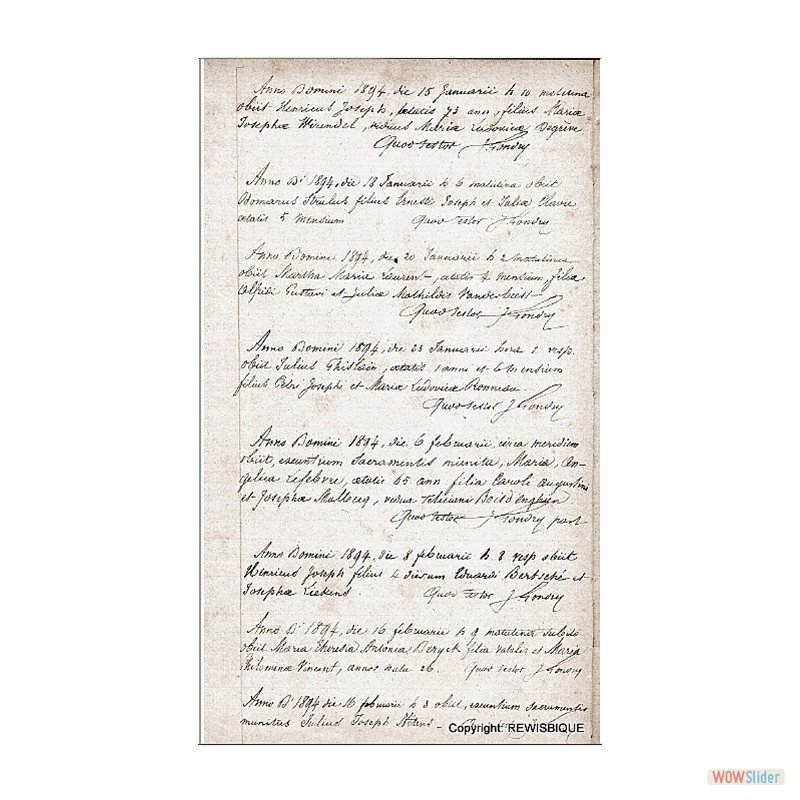 Anno Domini 1894, die 15 Januarii h 10 matutina
obiit Henricus Joseph, ætatis 73 ann, filius Mariæ
Josephæ Wirendel, viduus Mariæ Ludovicæ Degrève
Quod testor J. Gondry
Anno Di 1894, die 18 Januarii h 6 matutina obiit
Domarus filius Ernesti Joseph et Juliæ Clavie
ætatis 5 mensium Quod testor J. Gondry
Anno Domini 1894, die 20 Januarii h 2 matutina
obiit Martha Maria Laurent, ætatis 4 mensium, filia
Alfridi Gustavi et Juliæ Mathildis
Quod testor J. Gondry
Anno Domini 1894, die 23 Januarii hora 1 vesp.
obiit Julius Ghislain, ætatis 1 anni et 6 mensium
filius Petri Josephi et Mariæ Ludovicæ Bonneau
Quod testor J Gondry
Anno Domini 1894, die 6 februarii, circa meridiem
obiit, exeuntium Sacramentis munita, Maria, An-
gelica Lefebvre, ætatis 65 ann filia Caroli Augustini
et Josephæ Malberg, vidua Feliciani Boisdenghien
Quod testor J Gondry past
Anno Domini 1894, die 8 februarii h 8 vesp obiit
Henricus Joseph filius 4 dierum Eduardi Bertsché et
Josephæ Liekens. Quod testor J. Gondry
Anno Di 1894, die 16 februarii h 9 matutina subito
obiit Maria Theresia Antonia filia et Maria
Philomenæ Vincent, annos nata 26. Quod testor J. Gondry
Anno Di 1894 die 16 februarii h 3 obiit, exeuntium Sacramentis
munitus Julius Joseph
Copyright: REWISBIQUE
WOWSlider